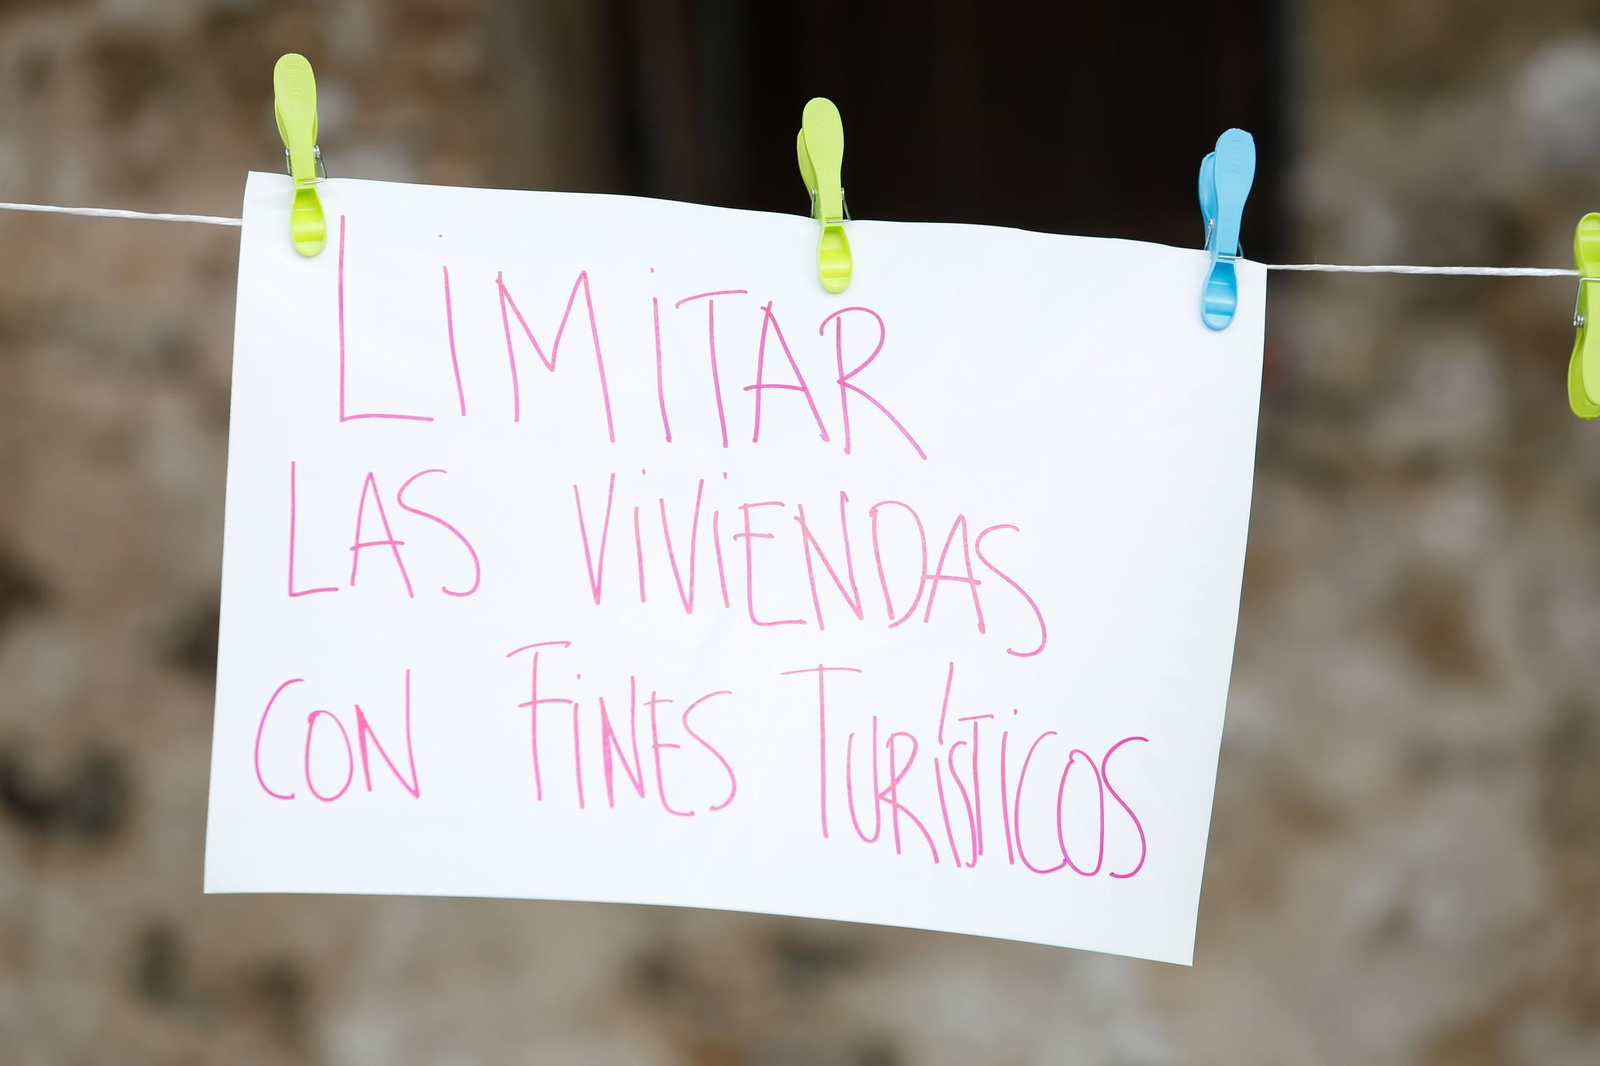 LIMITAR
LAS VIVIENDAS
CON FINES TURÍSTICOS